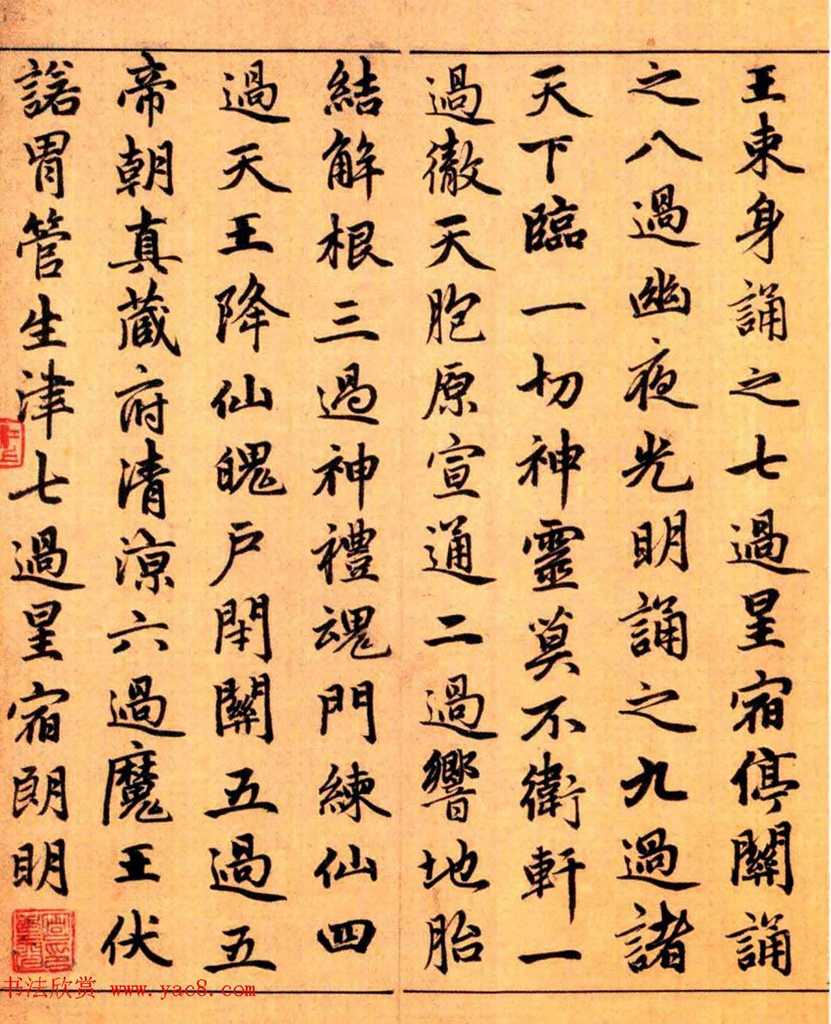 王束身誦之七過星宿停關誦
之八過幽夜光明誦之九過諸
天下臨一切神靈莫不衛軒一
過徹天胞原宣通二過響地胎
結解根三過神禮魂門練仙四
過天王降仙魄戶閉關五過五
帝朝真藏府清涼六過魔王伏
諾胃管生津七過星宿朗明
书法欣赏 www.yac8.com